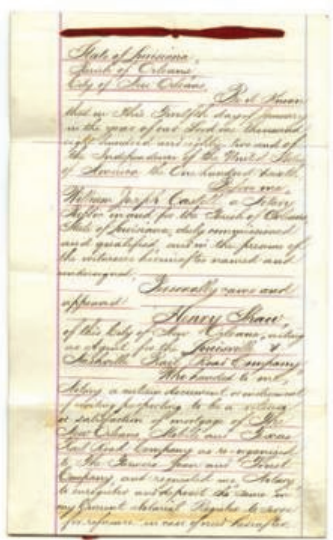 State of Louisiana,
Parish of Orleans,
City of New Orleans,
Be it Known
that on this day of January
in the year of our Lord one thousand
eight hundred and eighty two and of
the Independence of the United States
of America the One hundred
Before me,
William Joseph Castell, a Notary
Public in and for the Parish of Orleans
State of Louisiana, duly commissioned
and qualified, and in the presence of
the witnesses hereinafter named and
undersigned,
Personally came and
appeared
Henry
of this City of New Orleans, acting
as Agent for the Louisville &
Nashville Rail Road Company
Who handed to me,
Notary a certain document or instrument
of writing purporting to be a release
or satisfaction of mortgage of The
New Orleans Mobile and Texas
Rail Road Company as re-organized
to The Farmers Loan and Trust
Company, and requested me, Notary,
to and deposit the same in
my Current Notarial Register to serve
for reference in case of need hereafter